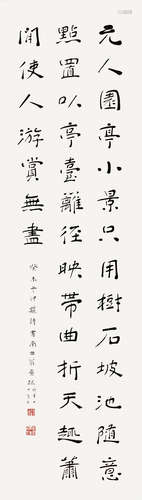 元人園亭小景只用樹石坡池隨意
點置以亭臺籬徑映帶曲折天趣蕭
閒使人游賞無盡